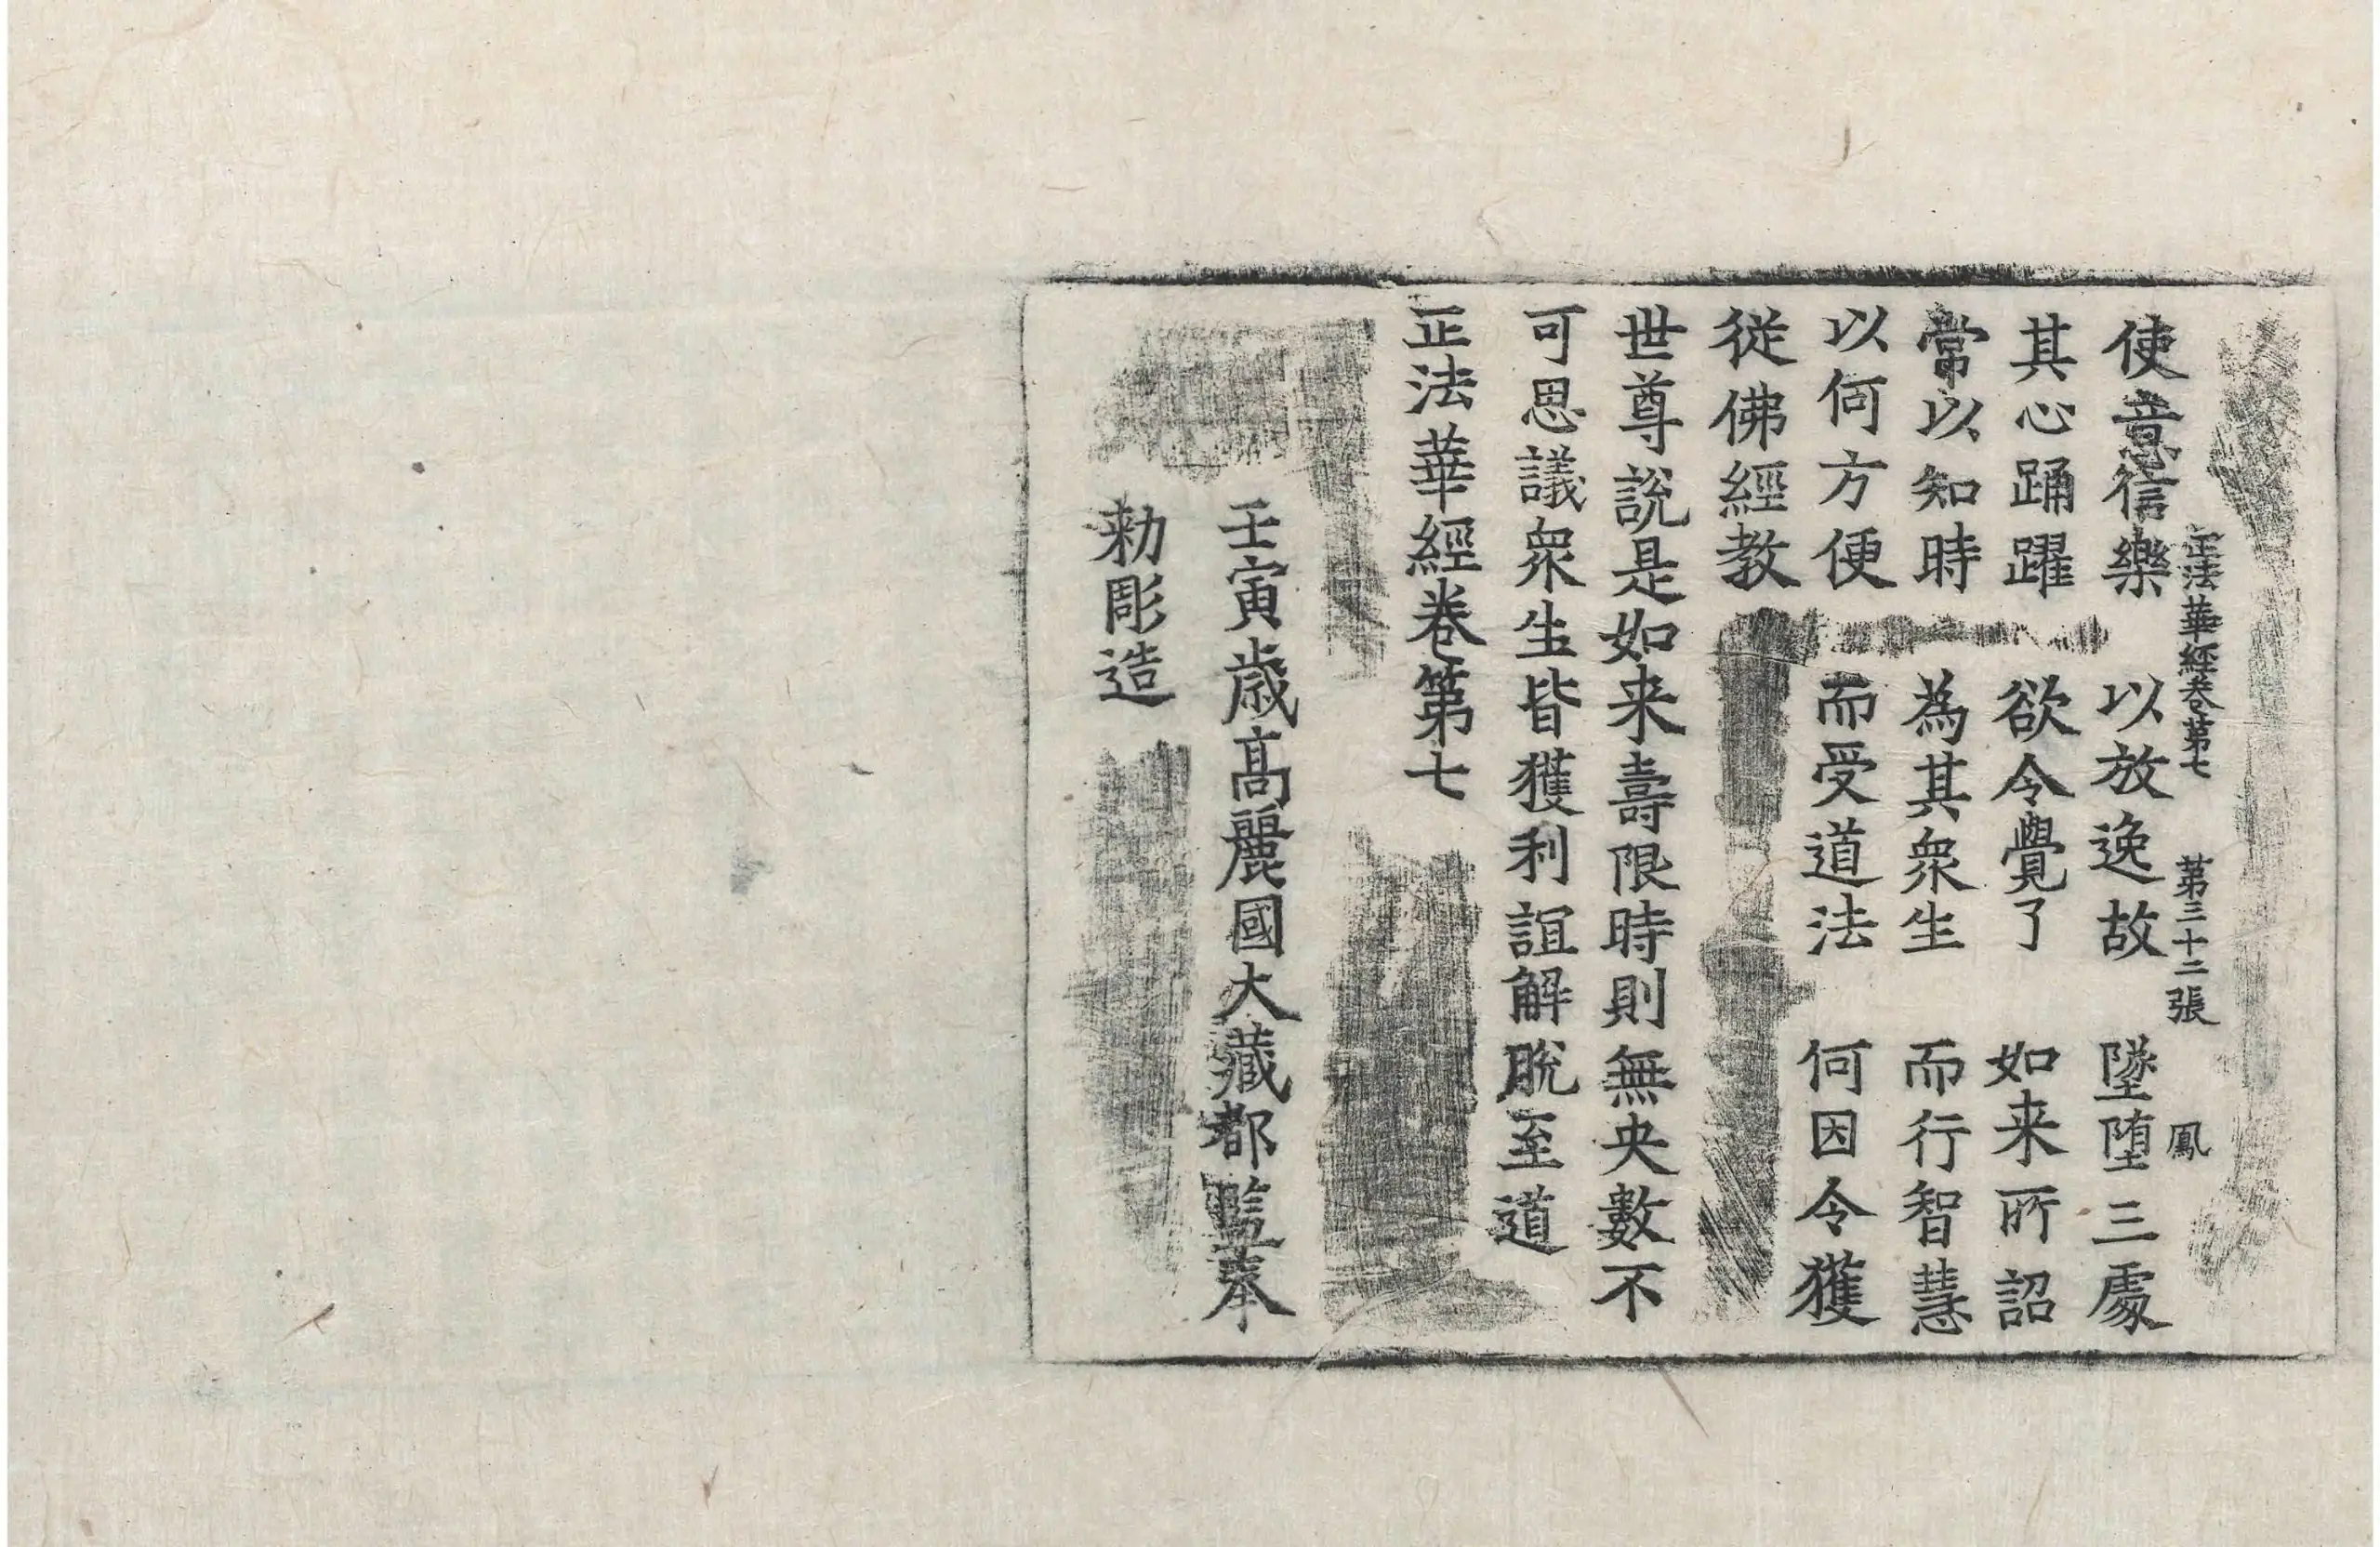 正法華經卷第七 第三十二張 鳳
使意信樂 以放逸故 墜堕三處
其心踊躍 欲令覺了 如来所詔
常以知時 為其衆生 而行智慧
以何方便 而受道法 何因令獲
從佛經教
世尊說是如来壽限時則無央數不
可思議衆生皆獲利誼解脫至道
正法華經卷第七
壬寅歲高麗國大藏都監奉
勅彫造